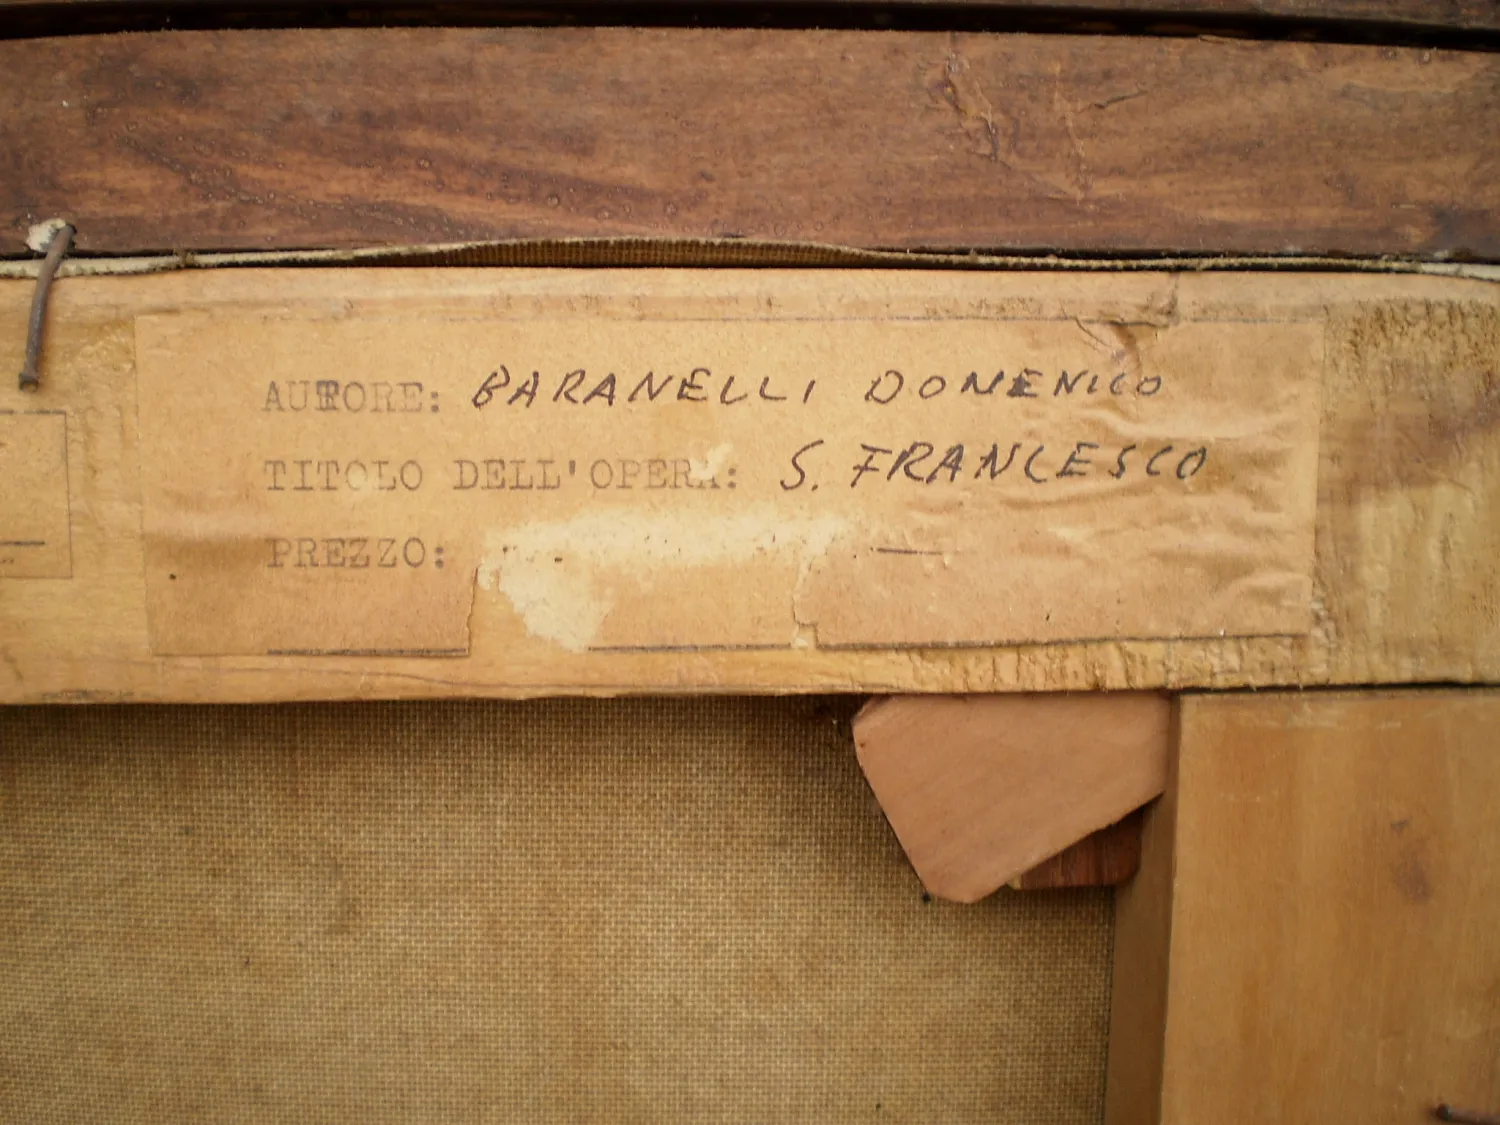 AUTORE: BARANELLI DOMENICO
TITOLO DELL'OPERA: S. FRANCESCO
PREZZO: